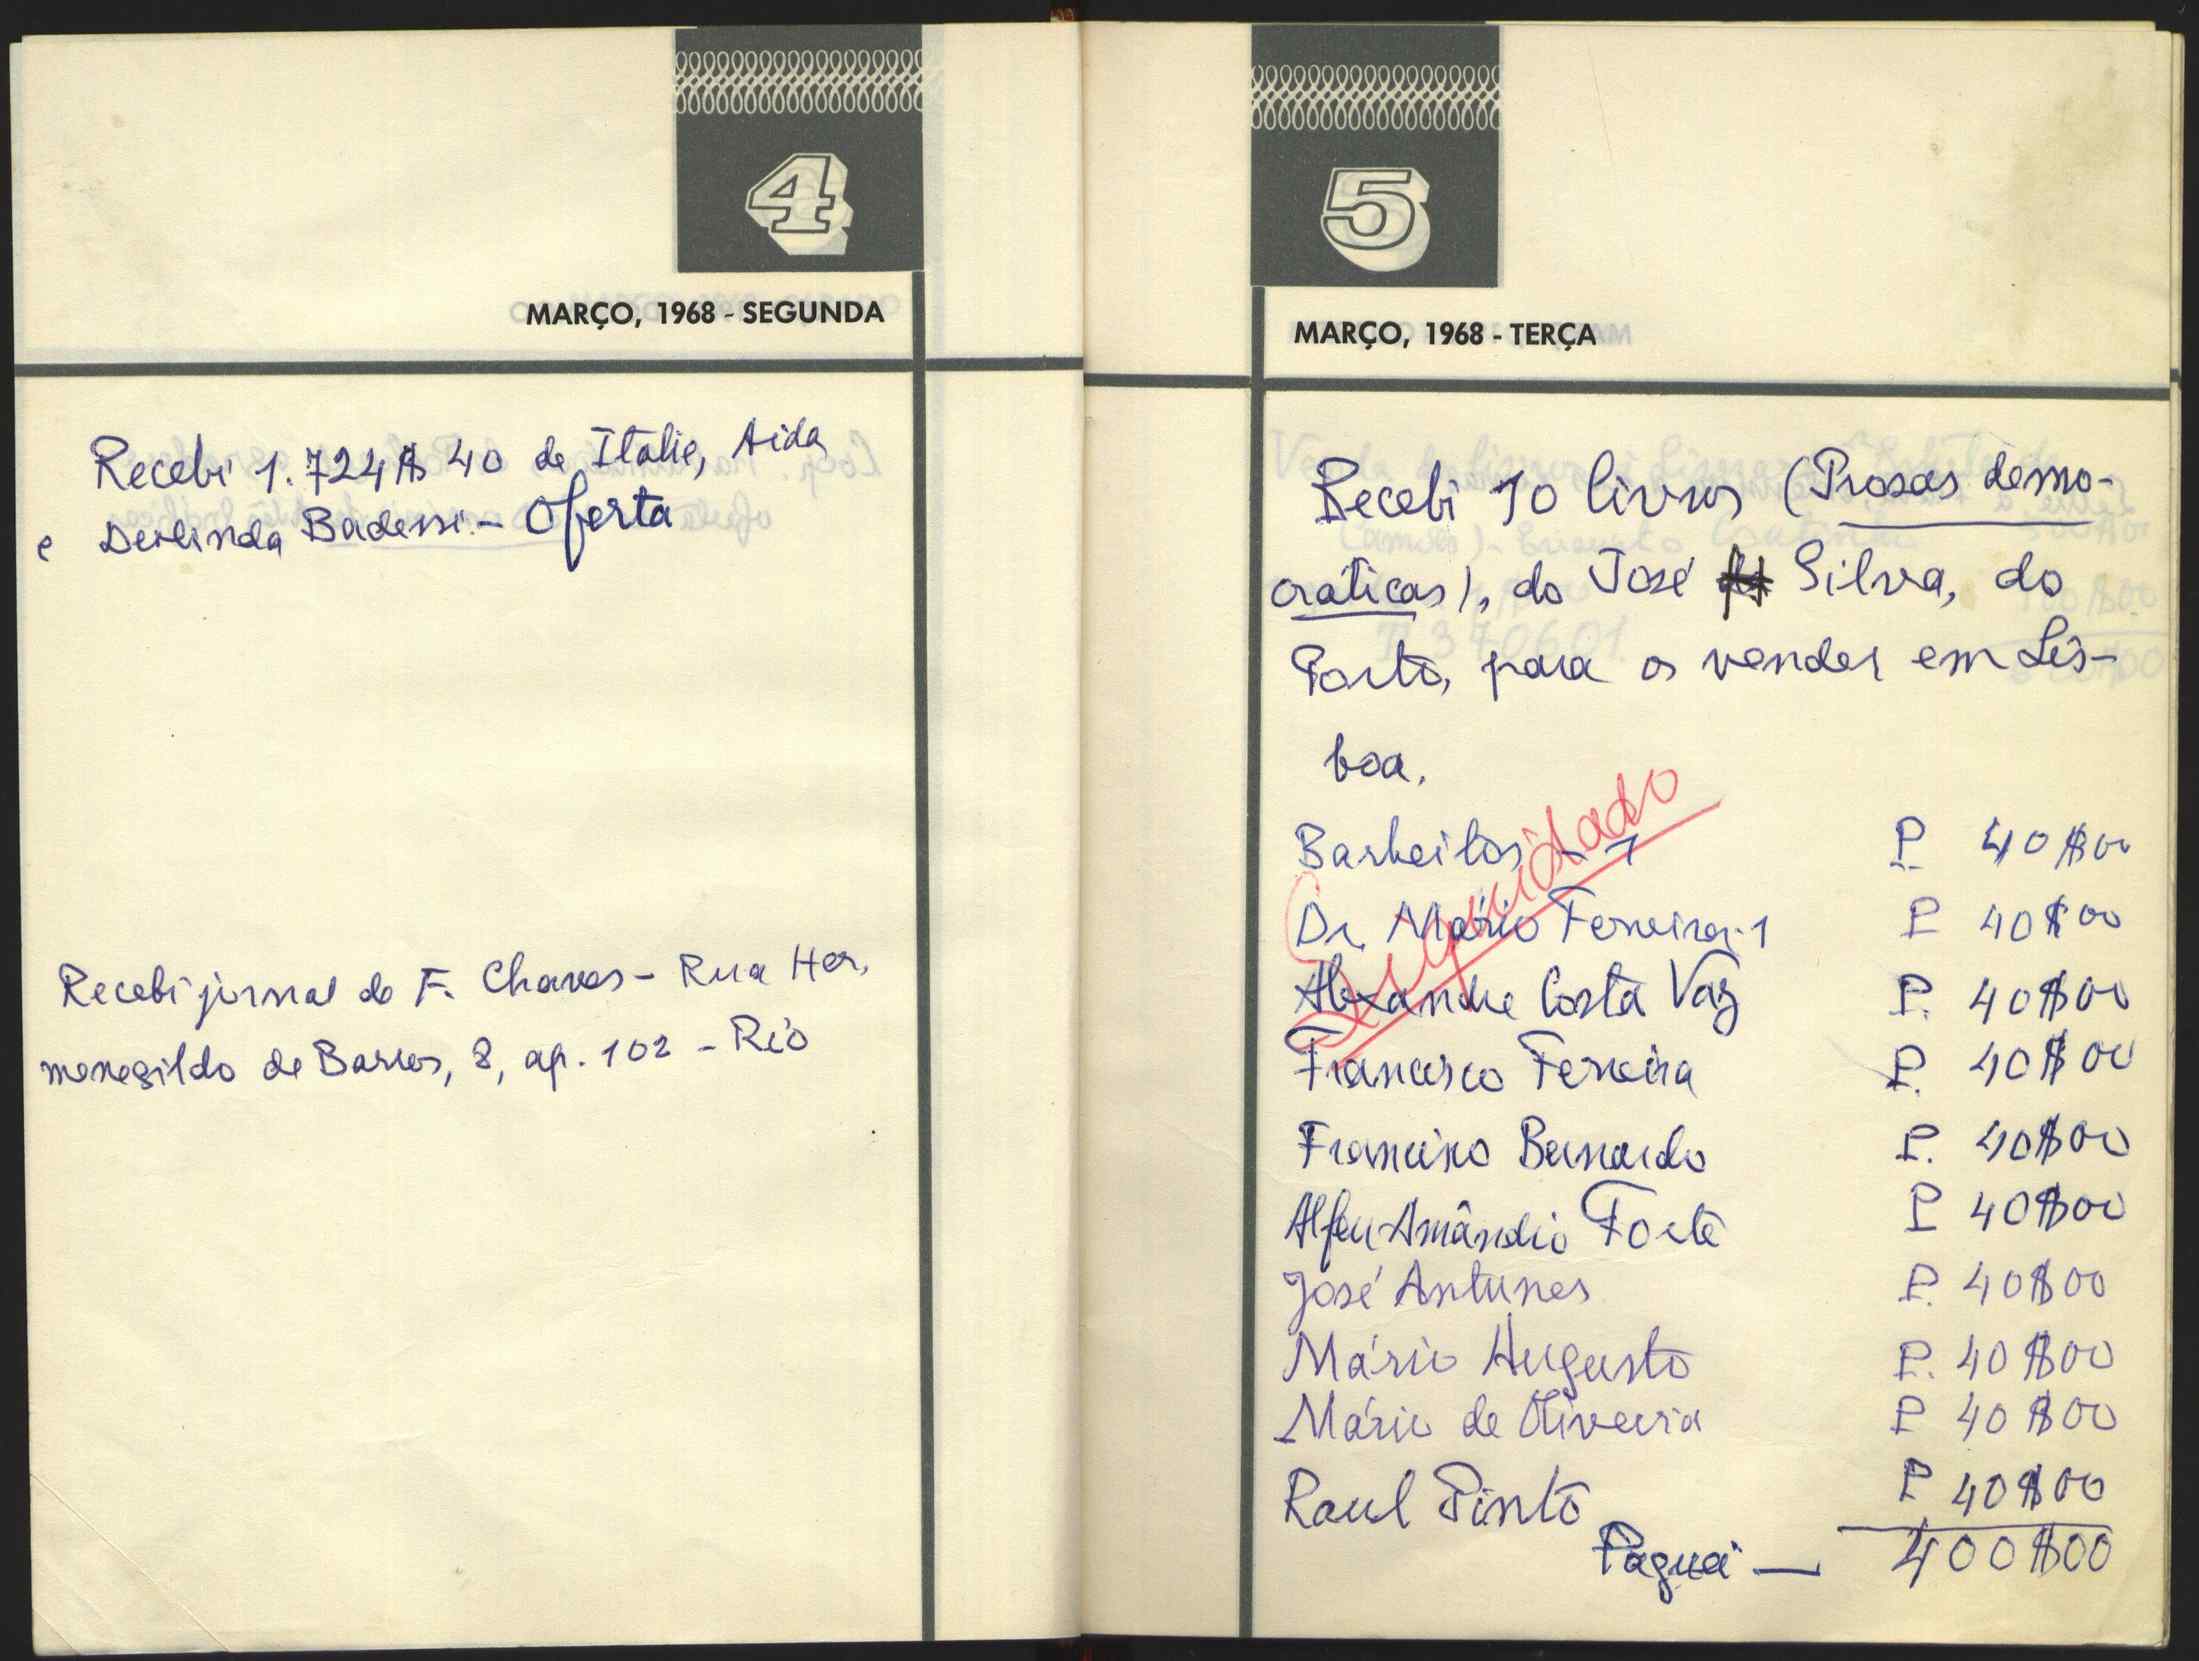 4
MARÇO, 1968 - SEGUNDA
Recebi 1.724$40 de Italie, Aida
e Derlinda Badessi - Oferta
Recebi jornal do F. Chaves - Rua Her,
menegildo de Barros, 8, ap. 102 - Rio
5
MARÇO, 1968 - TERÇA
Recebi 10 livros (Prosas demo-
cráticas), do José Silva, do
Porto, para os vender em Lis-
boa.
Liquidado
Barbeitos - 1 P. 40$00
Dr. Mário Ferreira - 1 P 40$00
Alexandre Costa Vaz P. 40$00
Francisco Ferreira P. 40$00
Francisco Bernardo P. 40$00
Alfeu Amândio Forte P 40$00
José Antunes P. 40$00
Mário Augusto P. 40$00
Mário de Oliveira P 40$00
Raul Pinto P 40$00
Paguei — 400$00